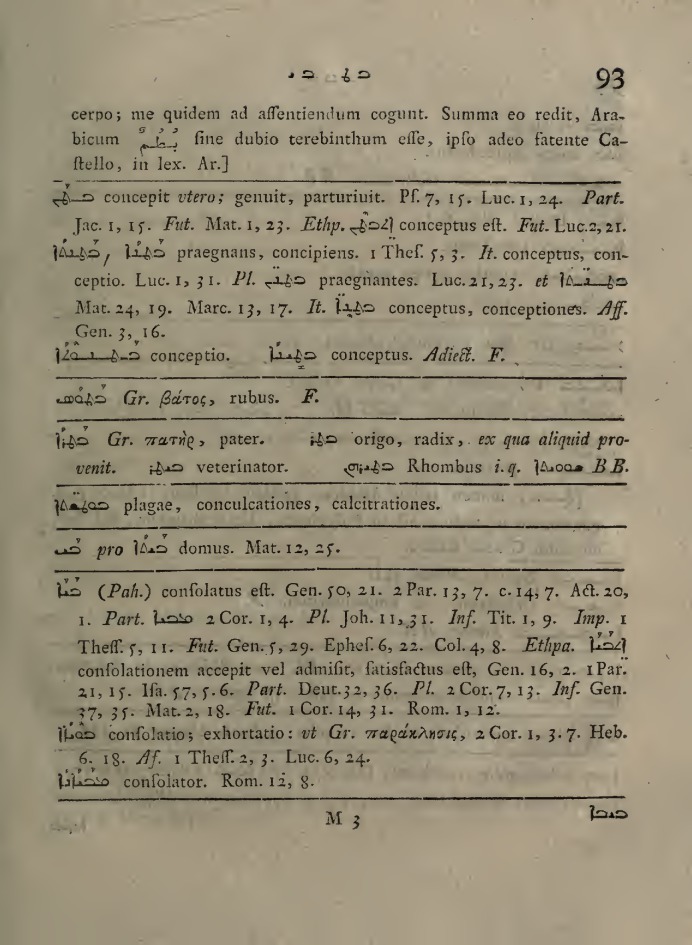 93
cerpo; me quidem ad aſſentiendum cogunt. Summa eo redit, Ara-
bicum ſine dubio terebinthum eſſe, ipſo adeo fatente Ca-
ſtello, in lex. Ar.]
ܒܛܢ concepit vtero; genuit, parturiuit. Pſ. 7, 15. Luc. 1, 24. Part.
Jac. 1, 15. Fut. Mat. 1, 23. Ethp. ܐܬܒܛܢ conceptus eſt. Fut. Luc. 2, 21.
praegnans, concipiens. 1 Theſ. 5, 3. It. conceptus, con-
ceptio. Luc. 1, 31. Pl. praegnantes. Luc. 21, 23. et
Mat. 24, 19. Marc. 13, 17. It. conceptus, conceptiones. Aff.
Gen. 3, 16.
conceptio. conceptus. Adiect. F.
Gr. βάτος, rubus. F.
Gr. πατὴρ, pater. origo, radix, ex qua aliquid pro-
venit. veterinator. Rhombus i. q. BB.
plagae, conculcationes, calcitrationes.
ܒܝ pro ܒܝܬܐ domus. Mat. 12, 25.
ܒܝܐ (Pah.) conſolatus eſt. Gen. 50, 21. 2 Par. 13, 7. c. 14, 7. Act. 20,
1. Part. ܡܒܝܐ 2 Cor. 1, 4. Pl. Joh. 11, 31. Inf. Tit. 1, 9. Imp. 1
Theſſ. 5, 11. Fut. Gen. 5, 29. Epheſ. 6, 22. Col. 4, 8. Ethpa. ܐܬܒܝܐ
conſolationem accepit vel admiſit, ſatisfactus eſt, Gen. 16, 2. 1 Par.
21, 15. Iſa. 57, 5. 6. Part. Deut. 32, 36. Pl. 2 Cor. 7, 13. Inf. Gen.
37, 35. Mat. 2, 18. Fut. 1 Cor. 14, 31. Rom. 1, 12.
ܒܘܝܐܐ conſolatio; exhortatio: vt Gr. παράκλησις, 2 Cor. 1, 3. 7. Heb.
6. 18. Af. 1 Theſſ. 2, 3. Luc. 6, 24.
ܡܒܝܐܢܐ conſolator. Rom. 12, 8.
M 3